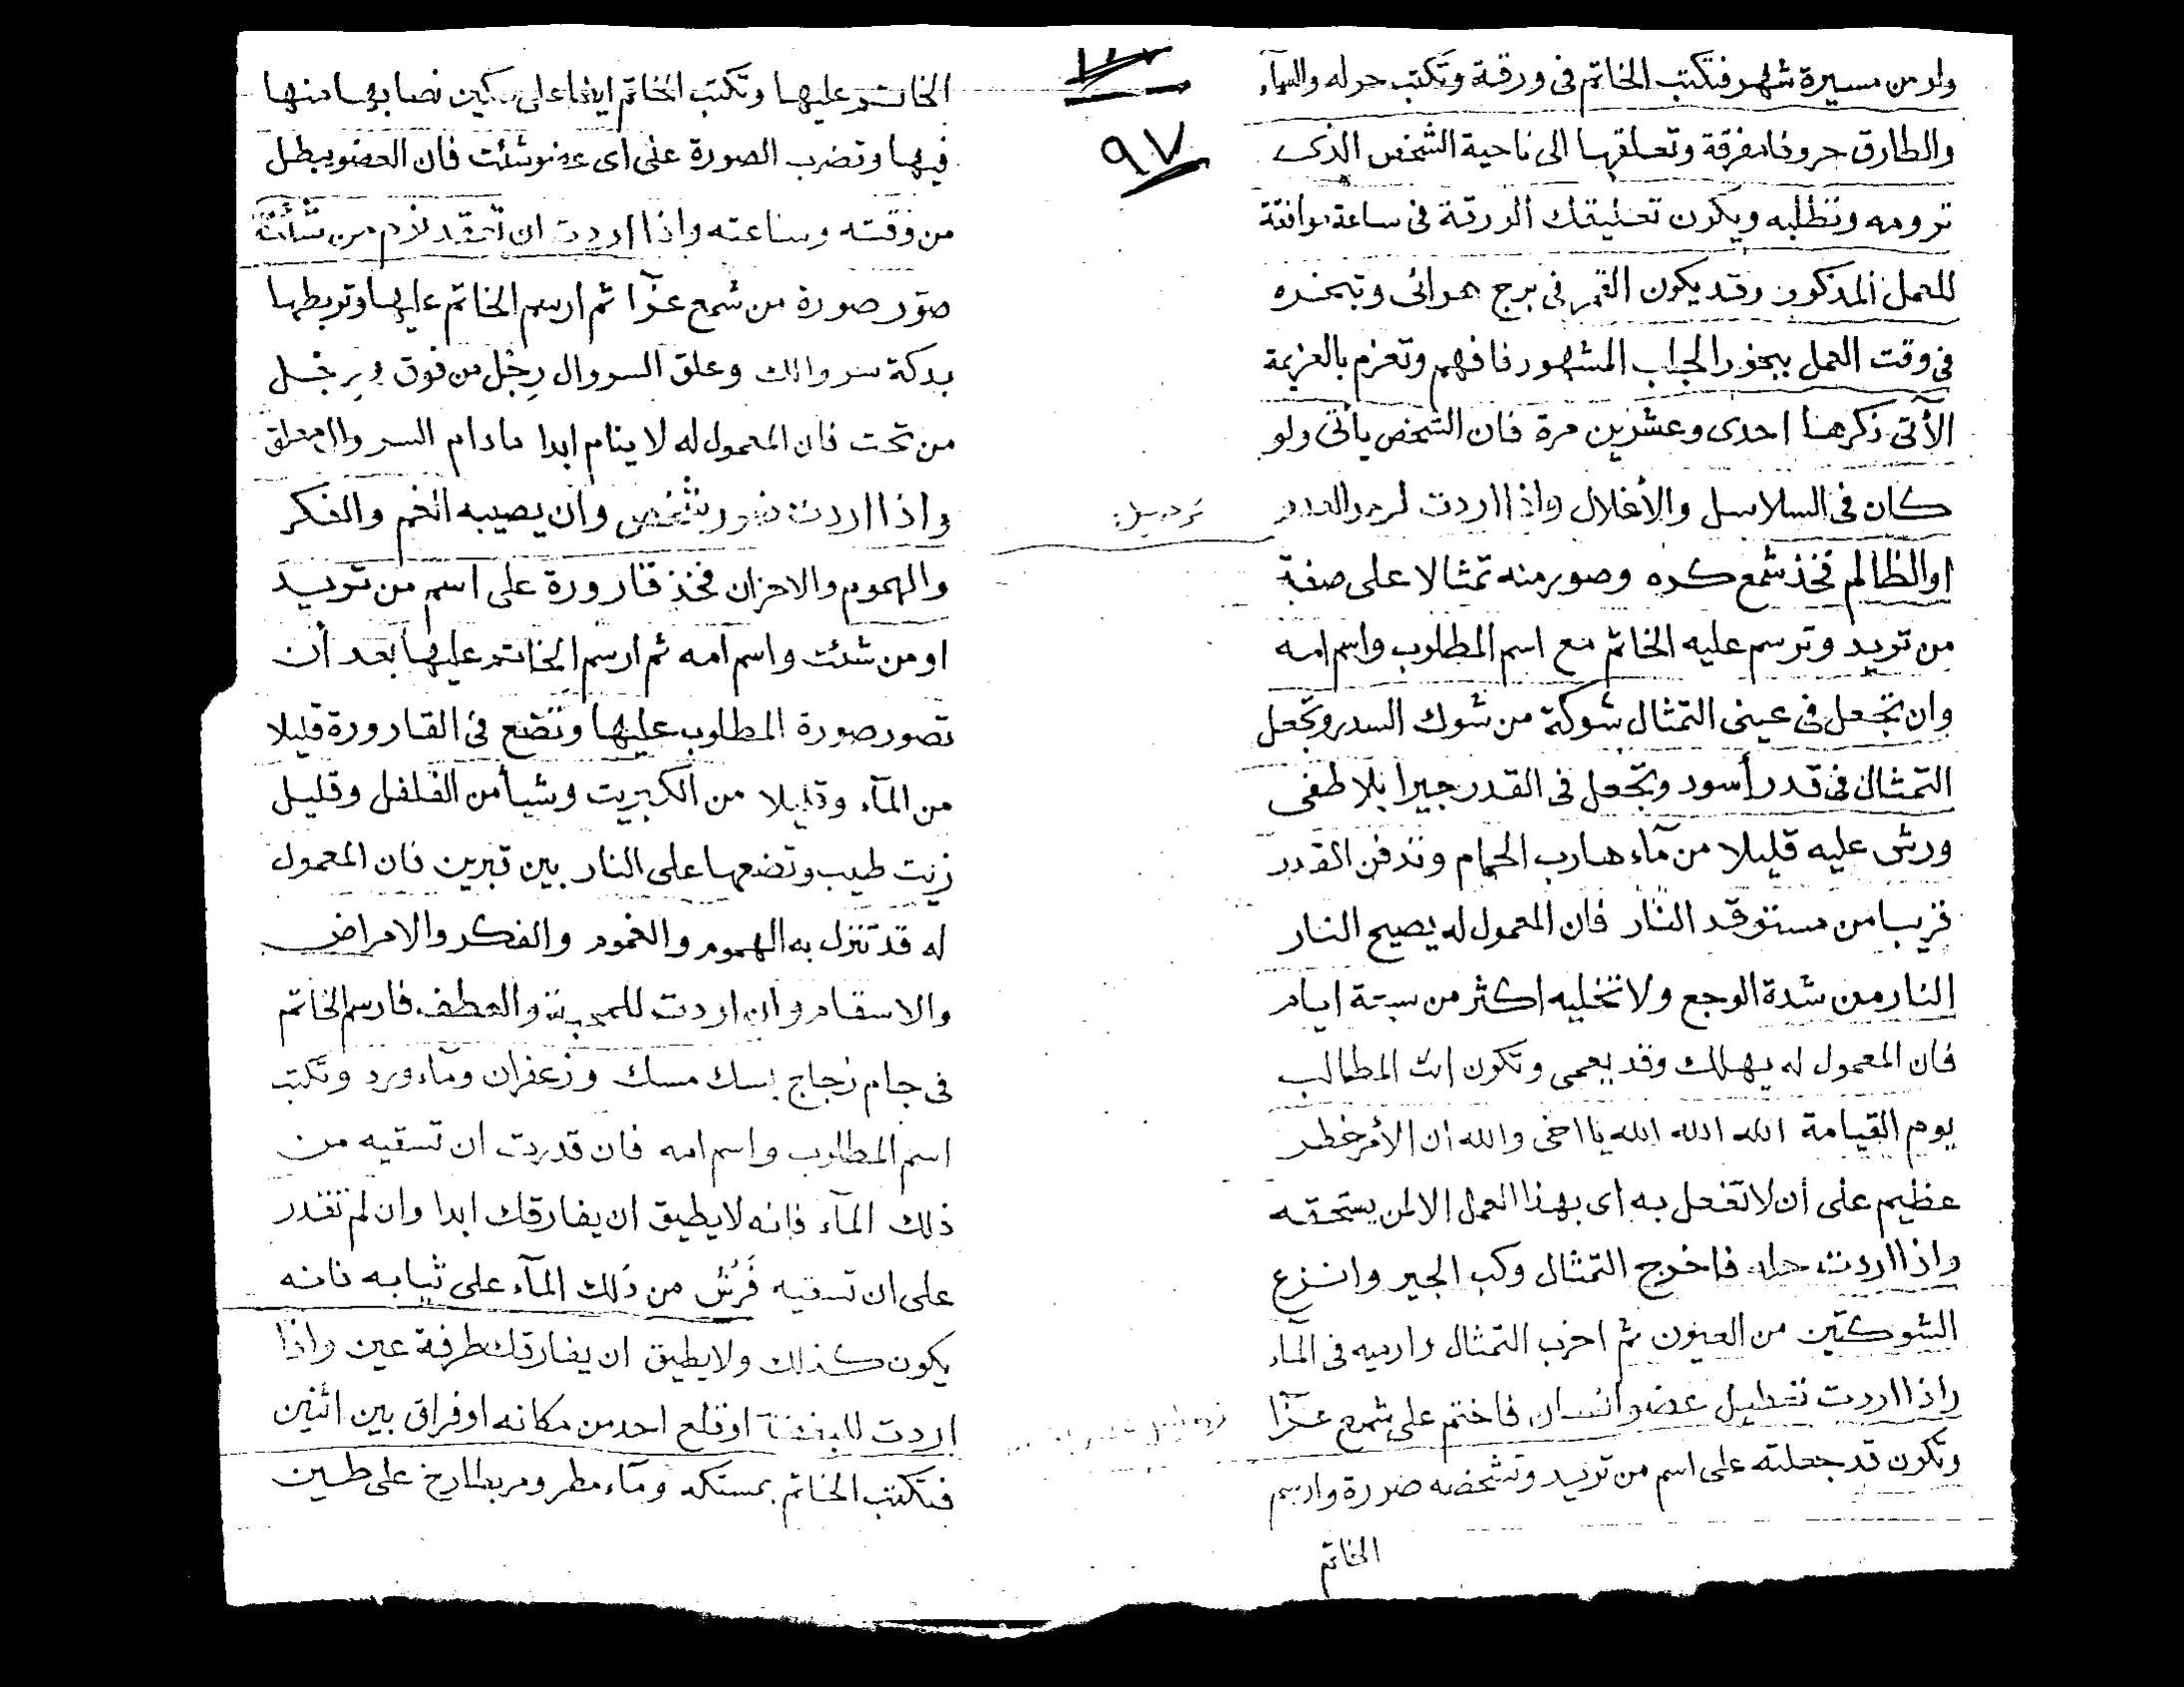 ولو من مسيرة شهر فتكتب الخاتم فى ورقة وتكتب حوله والسمآء
والطارق حروفا مفرقة وتعلقها الى ناحية الشخص الذى
ترومه وتطلبه ويكون تعليقك الورقة فى ساعة موافقة
للعمل المذكور وقد يكون القمر فى برج هوائى وتبخره
فى وقت العمل ببخور الجلب المشهور فافهم وتعزم بالعزيمة
الأتى ذكرها احدى وعشرين مرة فان الشخص يأتى ولو
كان فى السلاسل والأغلال واذا اردت العدو
او الظالم فخذ شمع كره وصور منه تمثالا على صفة
من تريد وترسم عليه الخاتم مع اسم المطلوب واسم امه
وان تجعل فى عينى التمثال شوكة من شوك السدر وتجعل
التمثال فى قدر أسود وتجعل فى القدر جيرا بلا طفى
ورش عليه قليلا من مآء هارب الحمام وتدفن القدر
قريبا من مستوقد النار فان المعمول له يصيح النار
النار من شدة الوجع ولا تخليه اكثر من ستة ايام
فان المعمول له يهلك وقد يعمى وتكون انت المطالب
يوم القيامة الله الله الله يا اخى والله ان الأمر خطر
عظيم على أن لا تفعل به اى بهذا العمل الا لمن يستحقه
واذا اردت حله فاخرج التمثال وكب الجير وانزع
الشوكتين من العيون ثم اخرب التمثال وارميه فى المآء
واذا اردت تعطيل عضو انسان فاختم على شمع عزا
وتكون قد جعلته على اسم من تريد وتشخصه صورة وارسم
الخاتم
٩٧
الخاتم عليها وتكتب الخاتم ايضا على سكين نصابها منها
فيها وتضرب الصورة على اى عضو شئت فان العضو يبطل
من وقته وساعته واذا اردت ان تعقد نوم من شئت
صور صورة من شمع عزا ثم ارسم الخاتم عليها وتربطها
بدكة سروالك وعلق السروال رجل من فوق ورجل
من تحت فان المعمول له لا ينام ابدا مادام السروال معلق
واذا اردت شخص وان يصيبه الغم والفكر
والهموم والاحزان فخذ قارورة على اسم من تريد
او من شئت واسم امه ثم ارسم الخاتم عليها بعد أن
تصور صورة المطلوب عليها وتضع فى القارورة قليلا
من المآء وقليلا من الكبريت وشيأ من الفلفل وقليل
زيت طيب وتضعها على النار بين قبرين فان المعمول
له قد تنزل به الهموم والغموم والفكر والامراض
والاسقام وان اردت للمحبة والعطف فارسم الخاتم
فى جام زجاج بسك مسك وزعفران ومآء ورد وتكتب
اسم المطلوب واسم امه فان قدرت ان تسقيه من
ذلك المآء فانه لا يطيق ان يفارقك ابدا وان لم تقدر
على ان تسقيه فرش من ذلك المآء على ثيابه فانه
يكون كذلك ولا يطيق ان يفارقك طرفة عين واذا
اردت للبغضة او قلع احد من مكانه او فراق بين اثنين
فتكتب الخاتم بمستكه ومآء مطر على طين